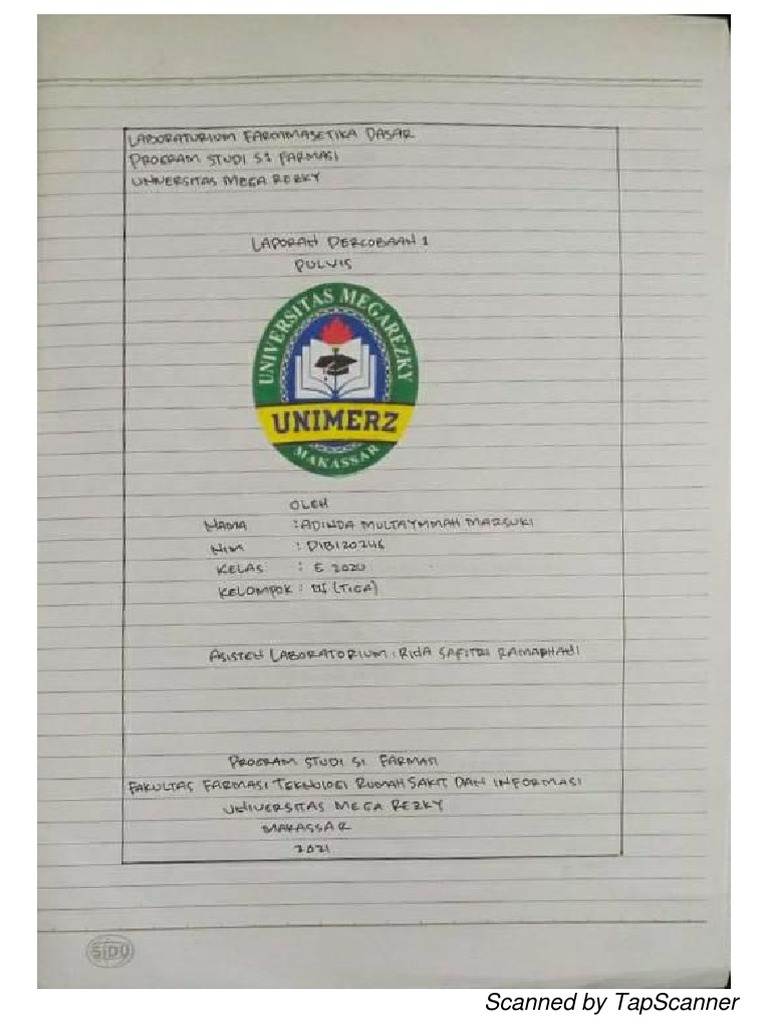 LABORATURIUM FARMMASETIKA DASAR
PROGRAM STUDI S1 FARMASI
UNIVERSITAS MEGA REZKY
LAPORAN PERCOBAAN 1
PULVIS
UNIVERSITAS MEGAREZKY
UNIMERZ
MAKASSAR
OLEH
NAMA : ADINDA MULTAYMMAH MARSUKI
NIM : D1B120246
KELAS : E 2020
KELOMPOK : III (TIGA)
ASISTEN LABORATORIUM : RINA SAFITRI RAMADHANI
PROGRAM STUDI S1 FARMASI
FAKULTAS FARMASI TEKNOLOGI RUMAH SAKIT DAN INFORMASI
UNIVERSITAS MEGA REZKY
MAKASSAR
2021
SIDU
Scanned by TapScanner